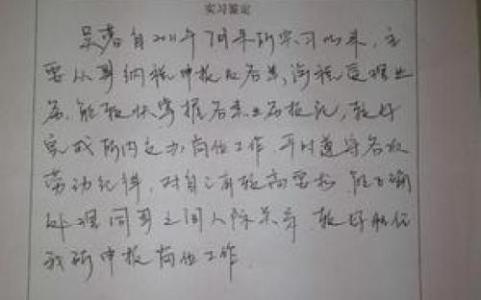 实习鉴定
吴蓉自2011年7月来所实习以来,主
要从事纳税申报及后续,等税受理业
务,能较快掌握各业务技能,较好
完成所内交办岗位工作,平时遵守各项
劳动纪律,对自己有较高要求,能正确
处理同事之间人际关系,较好胜任
我所申报岗位工作.